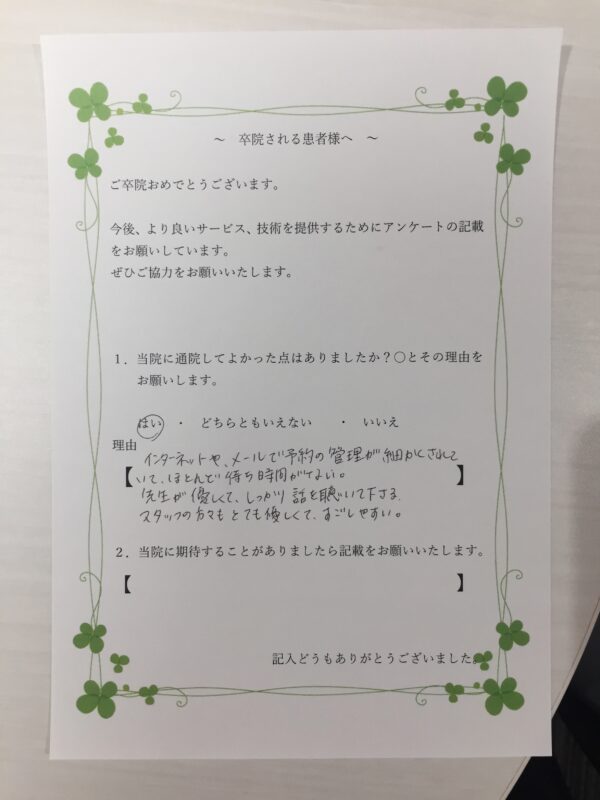 ～ 卒院される患者様へ ～
ご卒院おめでとうございます。
今後、より良いサービス、技術を提供するためにアンケートの記載
をお願いしています。
ぜひご協力をお願いいたします。
１．当院に通院してよかった点はありましたか？〇とその理由を
お願いします。
はい ・ どちらともいえない ・ いいえ
理由
インターネットや、メールで予約の管理が細かくされて
【いて、ほとんど待ち時間がない。】
先生が優しくて、しっかり話を聴いて下さる。
スタッフの方々もとても優しくて、すごしやすい。
２．当院に期待することがありましたら記載をお願いいたします。
【 】
記入どうもありがとうございました。